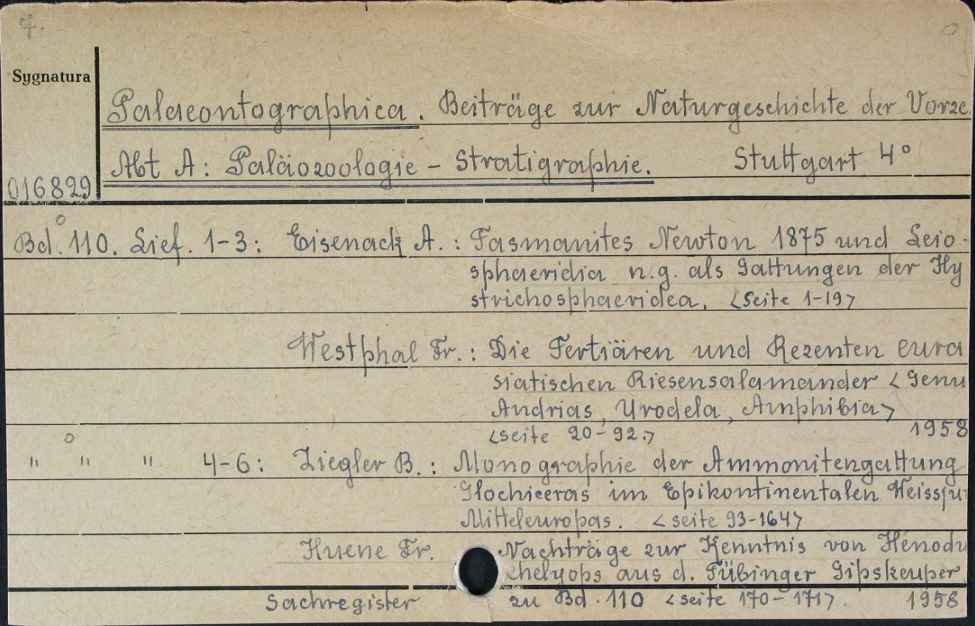 4.
Sygnatura
Palaeontographica. Beiträge zur Naturgeschichte der Vorze
Abt A: Paläozoologie - Stratigraphie. Stuttgart 4°
016829
Bd. 110. Lief. 1-3: Eisenack A.: Tasmanites Newton 1875 und Leio-
sphaeridia n.g. als Gattungen der Hy
strichosphaeridea. <Seite 1-19>
Westphal Fr.: Die Tertiären und Rezenten eura
siatischen Riesensalamander <Genu
Andrias, Urodela, Amphibia>
<seite 20-92.> 1958
" " " 4-6: Ziegler B.: Monographie der Ammonitengattung
Glochiceras im Epikontinentalen Weissju
Mitteleuropas. <seite 93-164>
Huene Fr. Nachträge zur Kenntnis von Henodu
chelyops aus d. Tübinger Gipskeuper
Sachregister zu Bd. 110 <seite 170-171>. 1958